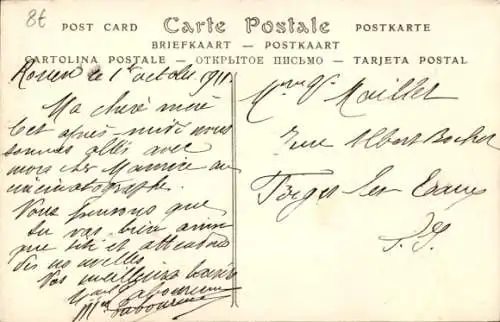 8€
POST CARD Carte Postale POSTKARTE
BRIEFKAART — POSTKAART
CARTOLINA POSTALE — ОТКРЫТОЕ ПИСЬМО — TARJETA POSTAL
Rouen le 1er octobre 1911.
Ma chère mère
Cet après-midi nous
sommes allés avec
mon cher Maurice au
cinématographe.
Nous pensons que
tu vas bien ainsi
que titi et attendons
des nouvelles.
Vos meilleurs baisers
Mme Vve Maillet
rue Albert Bochet
Forges les Eaux
S. I.